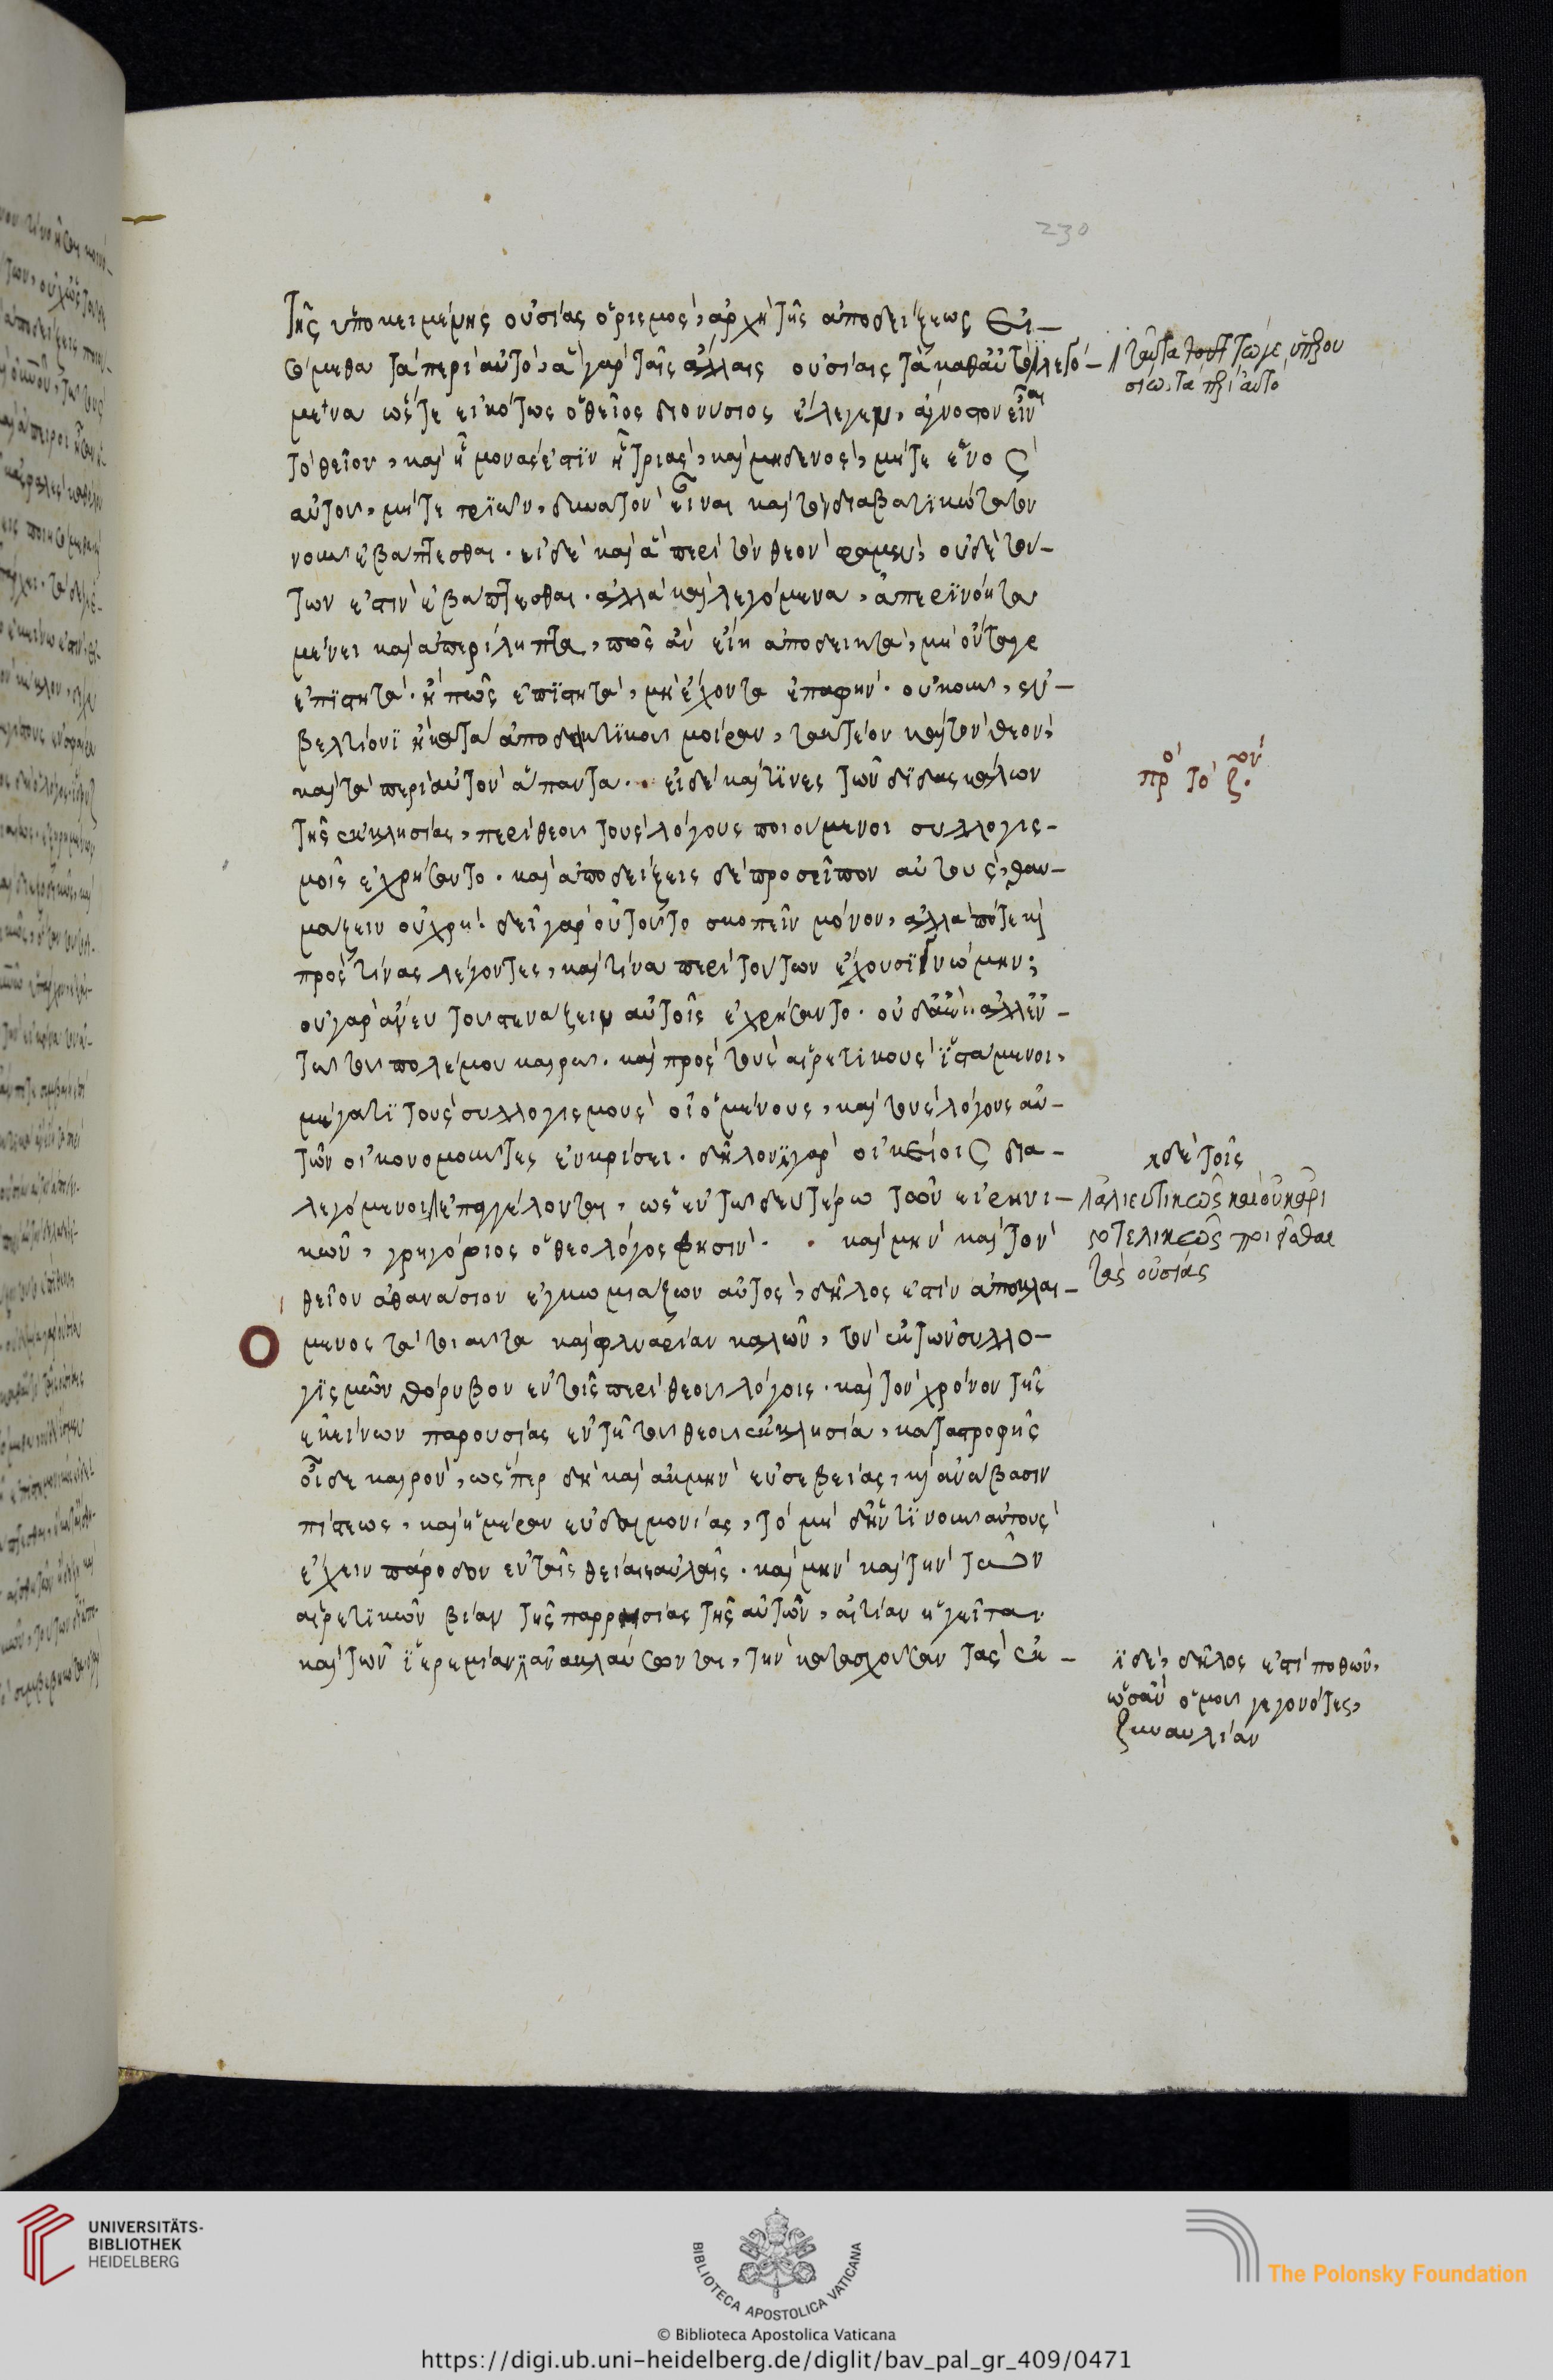 230
τῆς ὑποκειμένης οὐσίας ὁρισμός, ἀρχὴ τῆς ἀποδείξεως
θέμεθα τὰ περὶ αὐτό, ἃ γὰρ ταῖς ἄλλαις οὐσίαις τὰ καθαυτὸ λεγό-
μενα ὥστε εἰκότως ὁ θεῖος διονύσιος ἔλεγεν, ἄγνωστον εἶναι
τὸ θεῖον, καὶ ᾗ μονάς ἐστιν ᾗ τριάς, καὶ μηδενὸς, μήτε ἑνὸς
αὐτου, μήτε τριῶν, δυνατὸν εἶναι καὶ τὸν διαβατικώτατον
νοῦν ἐβάπτεσθαι. εἰ δὲ καὶ ἃ περὶ τὸν θεόν φαμεν, οὐδὲ τού-
των ἐστιν ἐβάπτεσθαι. ἀλλὰ καὶ λεγόμενα, ἀπερινόητα
μένει καὶ ἀπερίληπτα, πῶς ἂν εἴη ἀποδεικτὰ, μὴ ὄντα γε
ἐπιστητά. ἢ πῶς ἐπιστητά, μὴ ἔχοντα ἐπαφήν. οὐκοῦν, ἐν
βελτίονι ἢ κατὰ ἀποδεικτικὴν μοίραν, τακτέον καὶ τὸν θεόν,
καὶ τὰ περὶ αὐτὸν ἅπαντα. εἰ δὲ καί τινες τῶν διδασκάλων
τῆς ἐκκλησίας, περὶ θεοῦ τοὺς λόγους ποιούμενοι συλλογισ-
μοῖς ἐχρήσαντο. καὶ ἀποδείξεις δὲ προσεῖπον αὐτούς, θαυ-
μάζειν οὐ χρή. δεῖ γὰρ οὐ τοῦτο σκοπεῖν μόνον, ἀλλὰ πότε κ
πρὸς τίνας λέγοντες, καὶ τίνα περὶ τούτων ἔχουσι γνώμην;
οὐ γὰρ ἄνευ τοῦ στενάζειν αὐτοῖς ἐχρήσαντο. ἀλλ' ἐν
τῷ τοῦ πολέμου καιρῷ. καὶ πρὸς τοὺς αἱρετικοὺς ἱστάμενοι,
μέγα τι τοὺς συλλογισμοὺς οἰομένους, καὶ τοὺς λόγους αὐ-
τῶν οἰκονομοῦντες ἐν κρίσει. γὰρ οἰκείοις δια-
λεγόμενοι ἐπαγγέλονται, ὡς ἐν τῷ δευτέρω τῶν εἰρηνι-
κῶν, γρηγόριος ὁ θεολόγος φησίν. καὶ μὴν καὶ τὸν
θεῖον ἀθανάσιον ἐγκωμιάζων αὐτὸς, δῆλος ἐστὶν ἀποκλαι-
μενος τὰ τοιαῦτα καὶ φλυαρίαν καλῶν, τὸν ἐκ τῶν συλλο-
γισμῶν θόρυβον ἐν τοῖς περὶ θεοῦ λόγοις. καὶ τὸν χρόνον τῆς
ἐκείνων παρουσίας ἐν τῇ τοῦ θεοῦ ἐκκλησία, καταστροφῆς
οἶδε καιρὸν, ὥσπερ δὴ καὶ ἀκμὴν εὐσεβείας, κ ἀνάβασιν
πίστεως, καὶ ἡμέραν εὐδαιμονίας, τὸ μὴ αὐτοὺς
ἔχειν πάροδον ἐν ταῖς θείαις αὐλαῖς. καὶ μὴν καὶ τὴν τῶν
αἱρετικῶν βίαν τῆς παρρησίας τῆς αὐτῶν, αἰτίαν ἡγεῖται
καὶ τῶν ἱερεμίαν ἀνακλαύσονται, τὴν κατασχοῦσαν τὰς ἐκ-
ταῦτα
τὰ περὶ αὐτό
πρ τὸ ζ.
δὲ τοῖς
ἁλιευτικῶς καὶ οὐκ ἀρι
στοτελικῶς
τὰς οὐσίας
δὲ, δῆλος ἐστὶ ποθῶν,
ὁμοῦ γεγονότες,
UNIVERSITÄTS-
BIBLIOTHEK
HEIDELBERG
BIBLIOTECA APOSTOLICA VATICANA
The Polonsky Foundation
© Biblioteca Apostolica Vaticana
https://digi.ub.uni-heidelberg.de/diglit/bav_pal_gr_409/0471